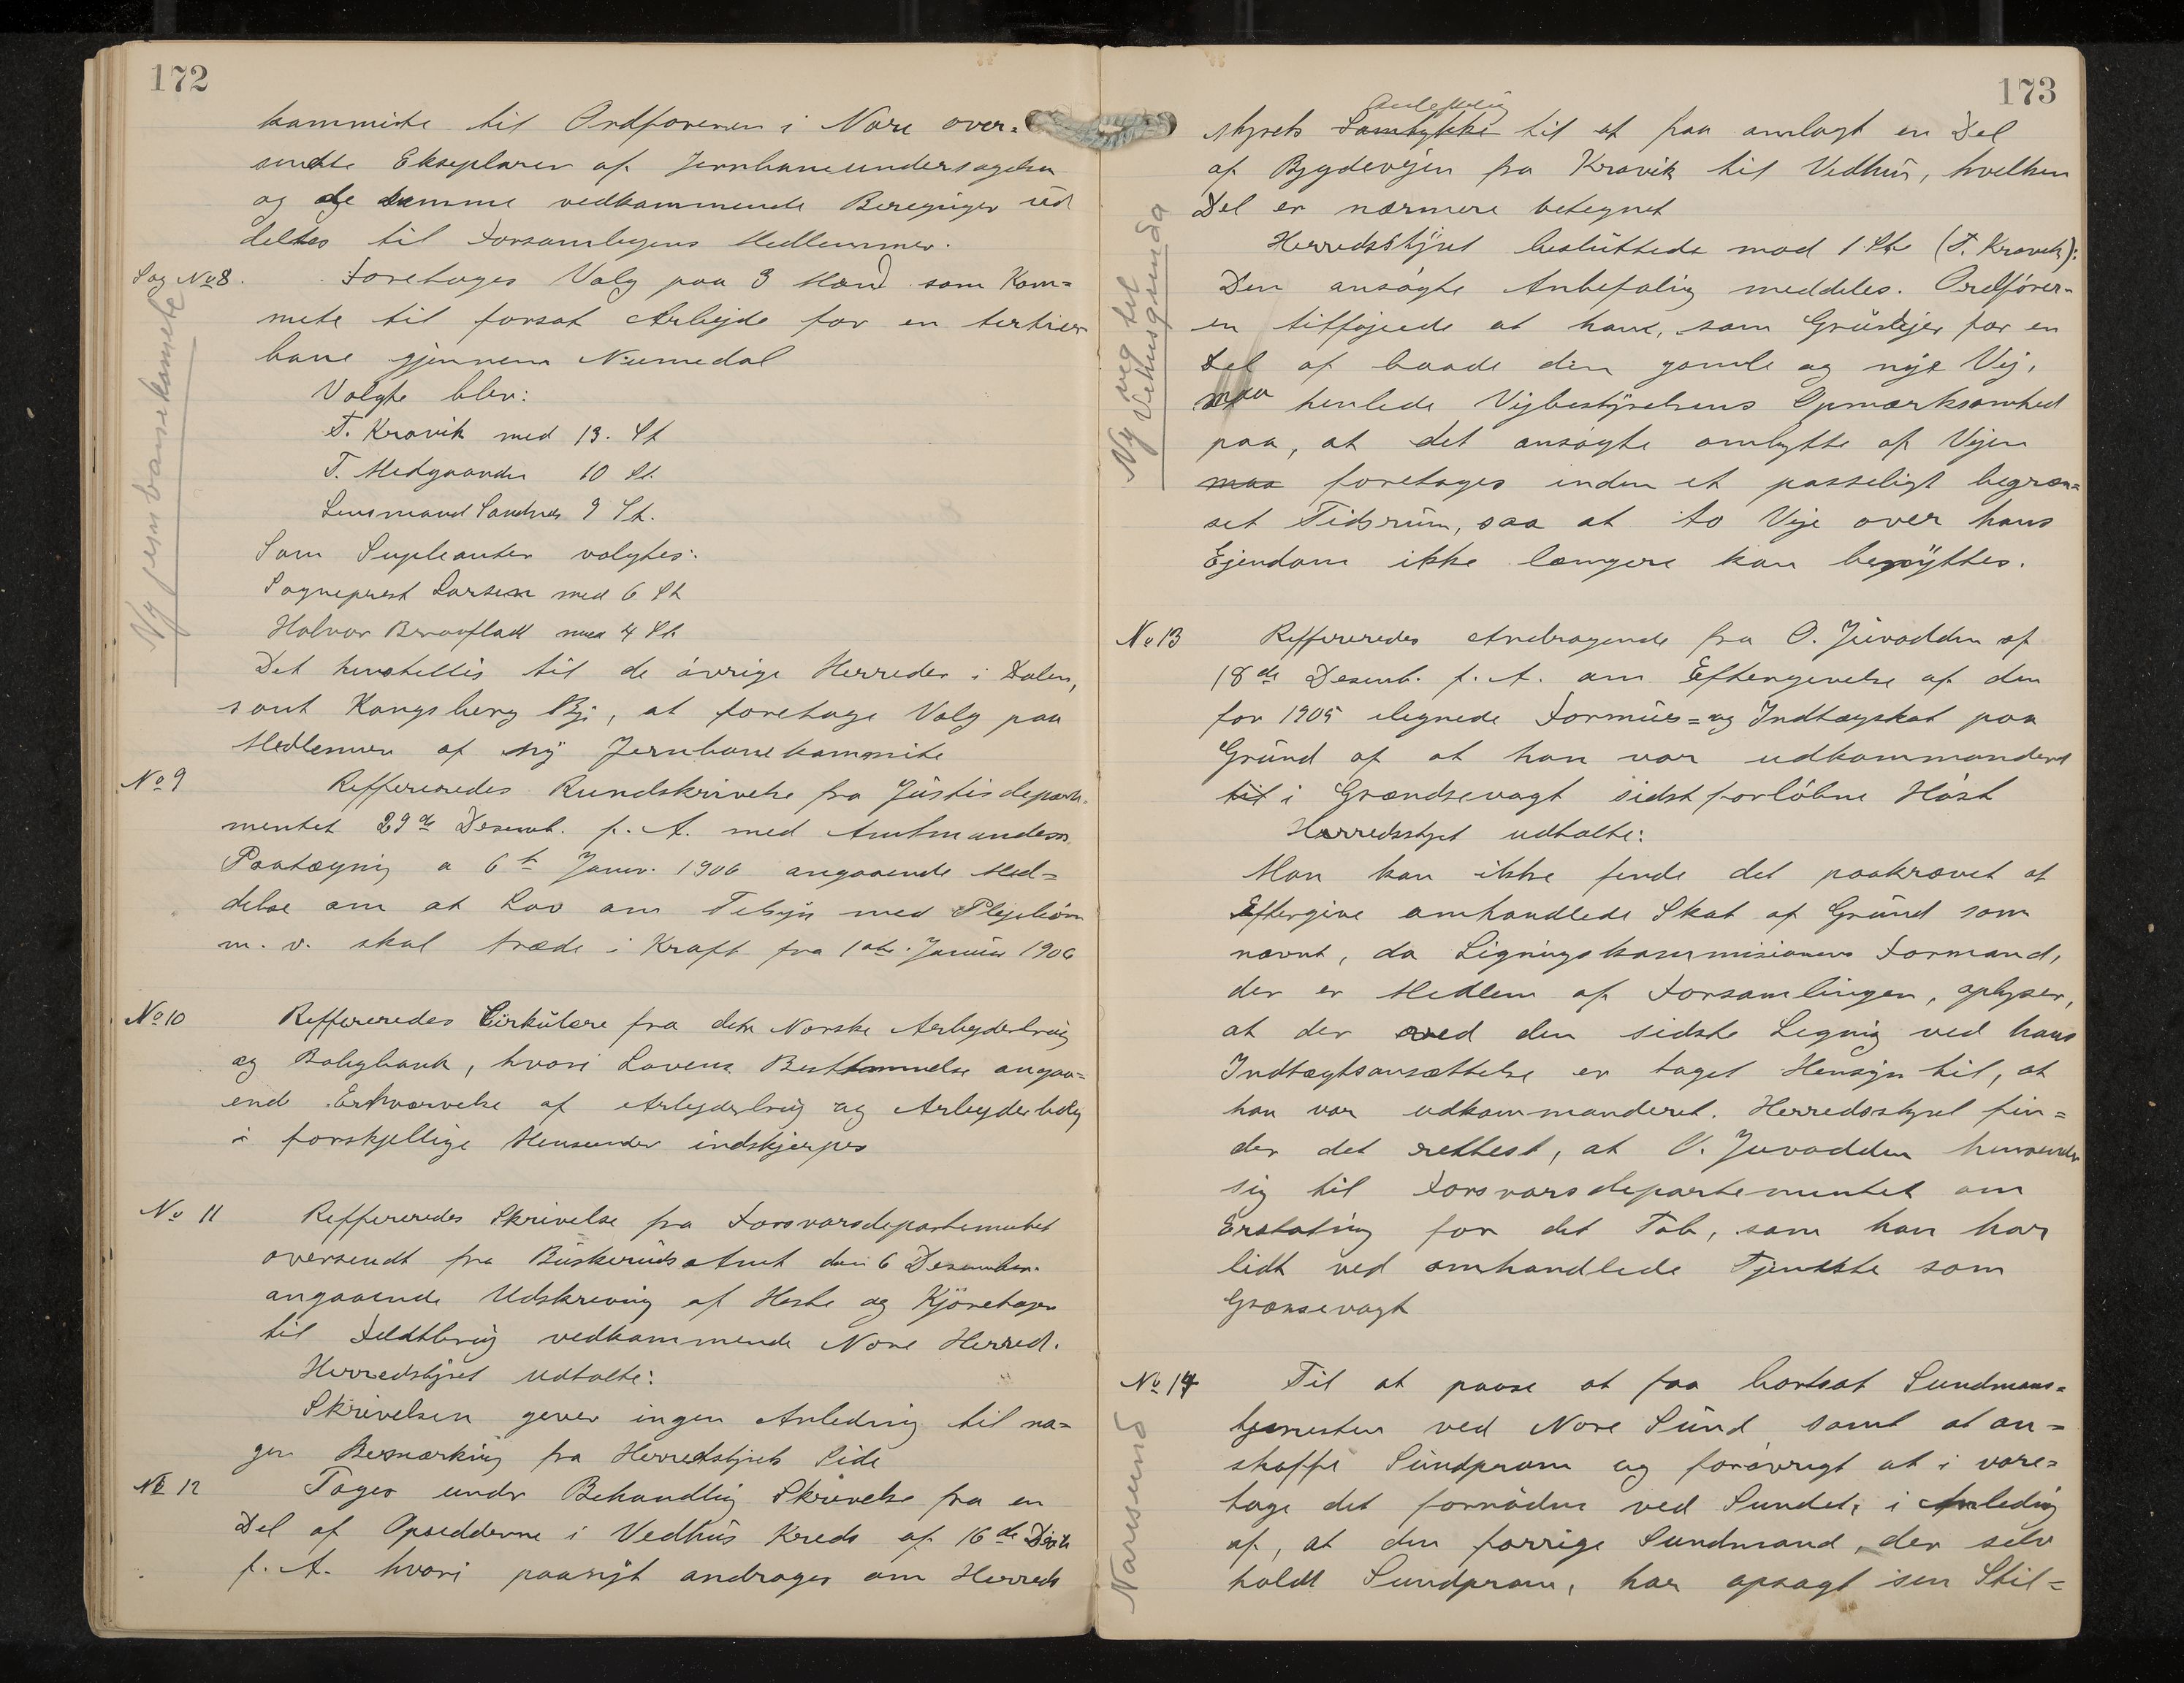 172
kammite til Ordføreren i Nore over=
sendte Ekseplarer af Jernbaneundersøgelsen
og de samme vedkommende Beregniger ud
deltes til Forsamlygens Medlemmer.
Sag No 8. Foretages Valg paa 3 Mænd som Kom=
mete til forsat Arbejde for en tertiær
bane gjennem Numedal
Valgte blev:
T. Kravik med 13. St
T. Medgaarden 10 St.
Lensmand Sandnes 9 St.
Som Supleanter valgtes:
Sogneprest Larsen med 6 St
Halvor Bravfladt med 4 St
Det henstelles til de øvrige Herreder i Dalen,
samt Kongsberg By, at foretage Valg paa
Medlemmer af ny Jernbanekammite
Ny jernbanekomite
No 9 Reffereredes Rundskrivelse fra Justisdepart=
mentet 29de Desemb. f. A. med Amtmandens
Paategnig a 6te Janv. 1906 angaaende Med=
delse om at Lov om Tilsyn med Plejebørn
m. v. skal træde i Kraft fra 1ste Januar 1906
No 10 Reffereredes Cirkulære fra den Norske Arbeyderbrug
og Boligbank, hvori Lovens Besttemmelse angaa=
ende Erhvervelse af Arbejderbrug og Arbeyderbolig
i forskjellige Hensender indskjerpes
No 11 Reffereredes Skrivelse fra Forsvarsdepartementet
oversendt fra Buskeruds Amt den 6 Desember
angaaende Udskrevnig af Heste og Kjøretøjer
til Feldtbrug vedkommende Nore Herred.
Herredstyret udtalte:
Skrivelsen gever ingen Anlednig til no=
gen Bemærknig fra Herredstyrets Side
No 12 Tages under Behandlig Skrivelse fra en
Del af Opsidderne i Vedhus Kreds af 16de Desb
f. A. hvori paanyt andrages om Herreds
173
Anbefalig
styrets Samtykke til at faa omlagt en Del
af Bygdevejen fra Kravik til Vedhus, hvelken
Del er nærmere betegnet
Herredsstyret besluttede mod 1 Ste (T. Kravik):
Den ansøgte Anbefalig meddeles. Ordfører=
en tilføjede at han, som Grundejer for en
Del af baade den gamle og nye Vej,
maa henlede Vejbestyrelsens Opmærksomhed
paa, at det ansøgte ombytte af Vejen
maa foretages inden et passeligt begræn=
set Tidsrum, saa at to Veje over hans
Ejendom ikke længere kan benyttes.
Ny veg til
Vehusgrenda
No 13 Reffereredes Andragende fra O. Juvodden af
18de Desemb. f. A. om Eftergivelse af den
for 1905 ilignede Formues= og Indtægskat paa
Grund af at han var udkommandert
til i Grændsevagt sidst forløbne Høst
Herredsstyret udtalte:
Man kan ikke finde det paakrævet at
Eftergive omhandlede Skat af Grund som
nævnt, da Ligningskommisionens Formand,
der er Medlem af Forsamlingen, oplyser,
at der ved den sidste Legnig ved hans
Indtægtsansættelse er taget Hensyn til, at
han var udkommanderet. Herredsstyret fin=
der det rettest, at O. Juvodden henvender
sig til Forsvarsdepartementet om
Erstatnig for det Tab, som han har
lidt ved omhandlede Tjeneste som
Grænsevagt
No 14 Til at passe at faa bortsat Sundmans=
tjenesten ved Nore Sund samt at an=
skaffe Sundpram og forøvrigt at i vare=
tage det fornødne ved Sundet, i Anlednig
af, at den forrige Sundmand, der selv
holdt Sundpram, har opsagt sen Stil=
Noresund